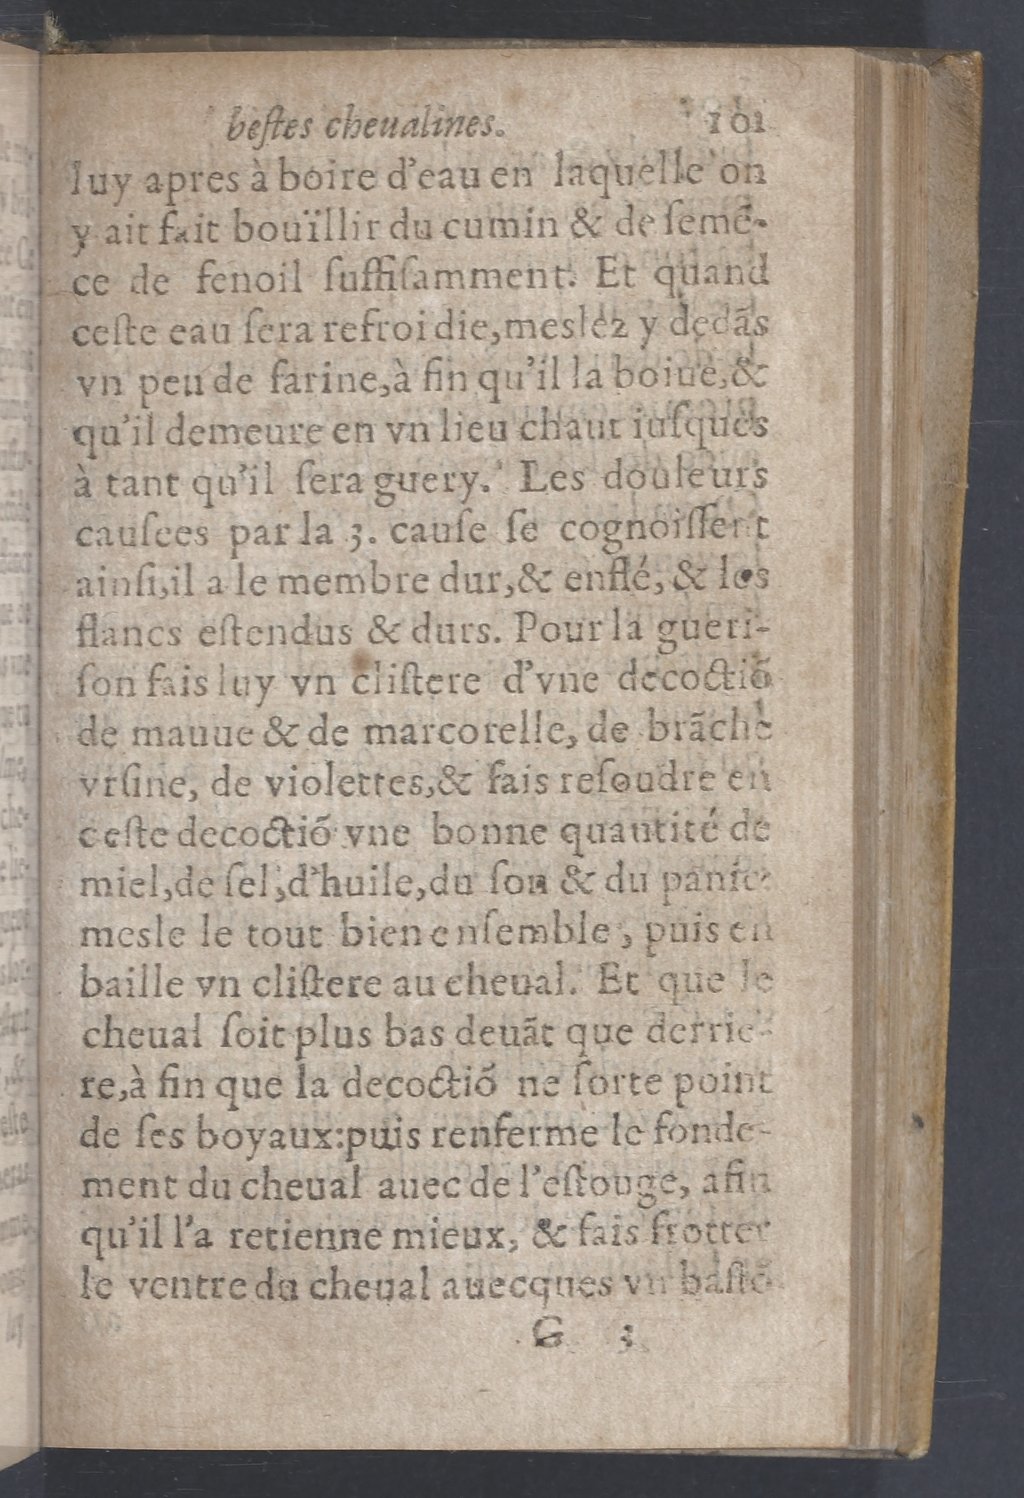 beſtes cheualines. 101
luy apres à boire d'eau en laquelle on
y ait fait bouïllir du cumin & de ſemẽ-
ce de fenoil ſuffiſamment. Et quand
ceſte eau ſera refroidie, meslez y dedãs
vn peu de farine, à fin qu'il la boiue, &
qu'il demeure en vn lieu chaut iuſques
à tant qu'il ſera guery. Les douleurs
cauſees par la 3. cauſe ſe cognoiſſent
ainſi, il a le membre dur, & enflé, & les
flancs eſtendus & durs. Pour la gueri-
ſon fais luy vn cliſtere d'vne decoctiõ
de mauue & de marcorelle, de brãche
vrſine, de violettes, & fais reſoudre en
ceſte decoctiõ vne bonne quantité de
miel, de ſel, d'huile, du ſon & du panic:
mesle le tout bien enſemble, puis en
baille vn cliſtere au cheual. Et que le
cheual ſoit plus bas deuãt que derrie-
re, à fin que la decoctiõ ne ſorte point
de ſes boyaux: puis renferme le fonde-
ment du cheual auec de l'eſtouge, afin
qu'il l'a retienne mieux, & fais frotter
le ventre du cheual auecques vn baſtõ
G 3